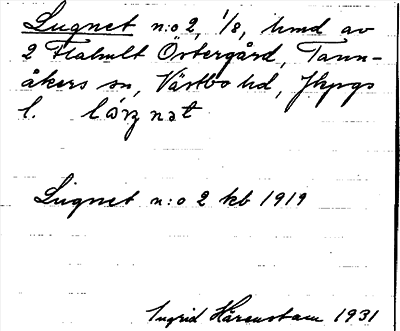 Lugnet n:o 2, 1/8, hmd av
2 Flahult Östergård, Tann-
åkers sn, Västbo hd, Jkpgs
l.
Lugnet n:o 2 kb 1919
Ingrid Hårenstam 1931